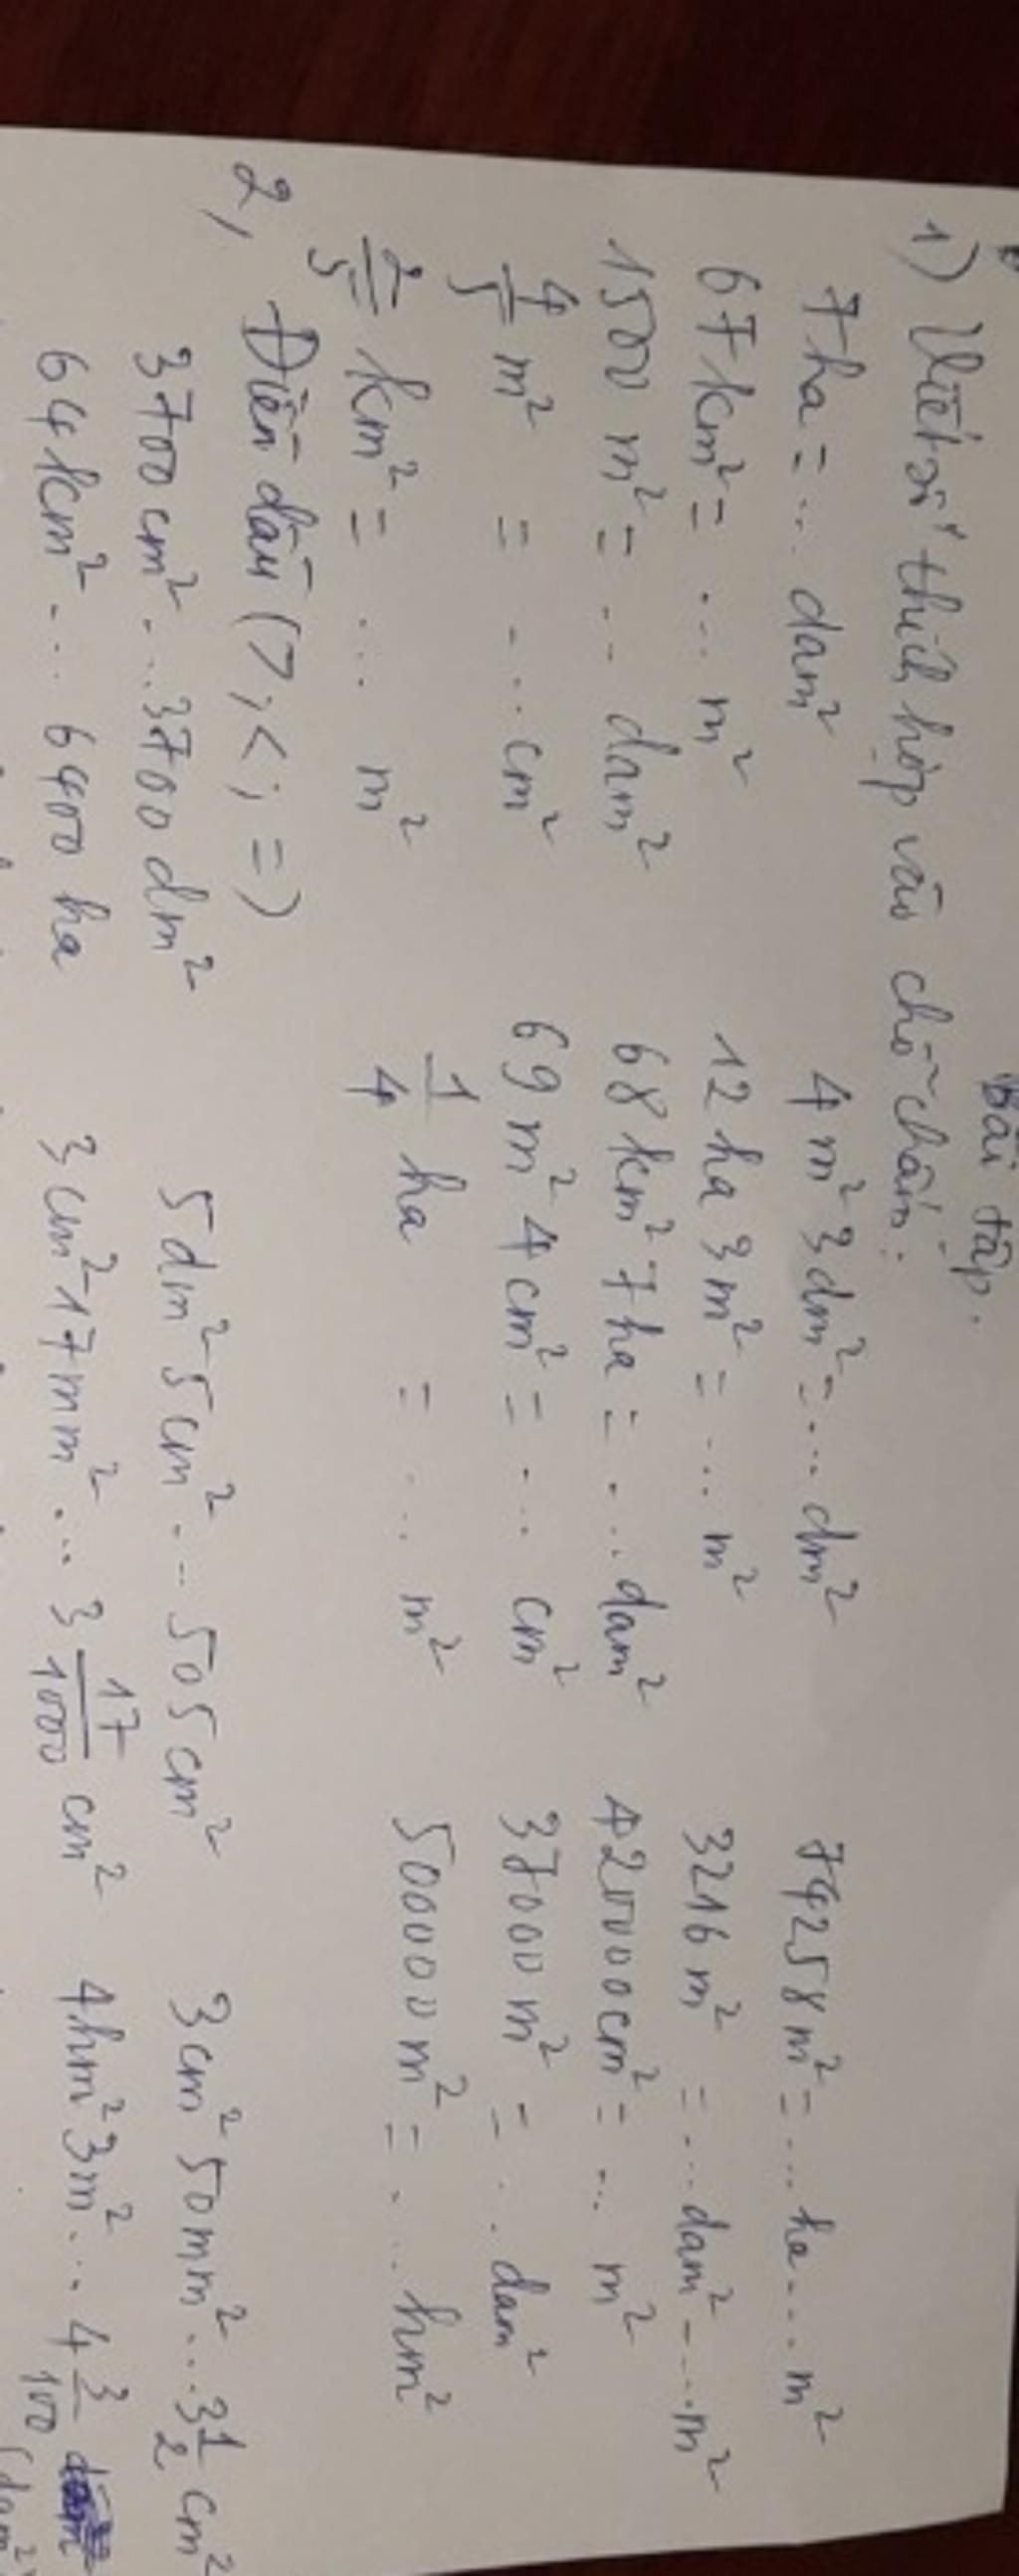 Bài tập.
1) Viết số thích hợp vào chỗ chấm:
7ha = ... dam² 4 m² 3dm² = ... dm² 79258 m² = ... ha ... m²
67km² = ... m² 12 ha 3 m² = ... m² 3216 m² = ... dam² ... m²
1500 m² = ... dam² 68 km² 7 ha = ... dam² 420000cm² = ... m²
4/5 m² = ... cm² 69 m² 4 cm² = ... cm² 37000 m² = ... dam²
2/5 km² = ... m² 1/4 ha = ... m² 500000 m² = ... hm²
2, Điền dấu (>; <; =)
3700 cm² ... 3700 dm² 5dm² 5cm² ... 505 cm² 3cm² 50mm² ... 3 1/2 cm²
64km² ... 6400 ha 3 cm² 17mm² ... 3 17/1000 cm² 4hm² 3m² ... 4 3/100
(dam²)